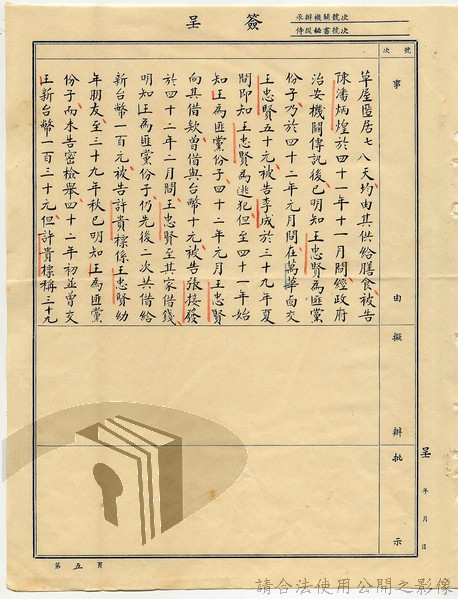 簽呈
承辦機關號次
侍從秘書號次
號次
事由
擬辦
批示
草屋匿居七八天均由其供給膳食被告
陳潘炳煌於四十一年十一月間經政府
治安機關傳訊後已明知王忠賢為匪黨
份子乃於四十二年元月間在萬華面交
王忠賢五十元被告李成於三十九年夏
間即知王忠賢為逃犯但至四十一年始
知王為匪黨份子四十二年元月王忠賢
向其借款曾借與台幣十元被告張接發
於四十二年二月間王忠賢至其家借錢
明知王為匪黨份子仍先後二次共借給
新台幣一百元被告許貴標係王忠賢幼
年朋友至三十九年秋已明知王為匪黨
份子而未告密檢舉四十二年初並曾交
王新台幣一百三十元但許貴標稱三十元
呈 年 月 日
第五頁
請合法使用公開之影像